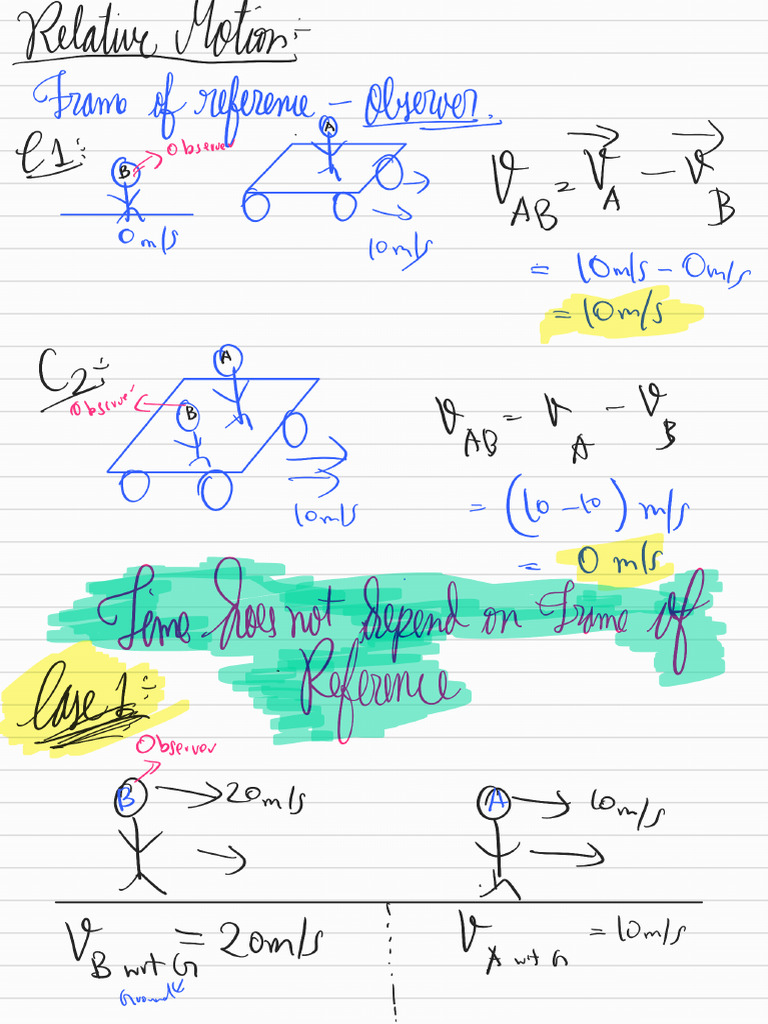 Relative Motion:-
Frame of reference - Observer.
C1:-
B
Observer
A
0 m/s
10 m/s
V_AB = V_A - V_B
= 10 m/s - 0 m/s
= 10 m/s
C2:-
A
B
Observer
10 m/s
V_AB = V_A - V_B
= (10 - 10) m/s
= 0 m/s
Time does not depend on Frame of
Reference
Case 1:-
Observer
B
20 m/s
A
10 m/s
V_B wrt G = 20 m/s
Ground
V_A wrt G = 10 m/s